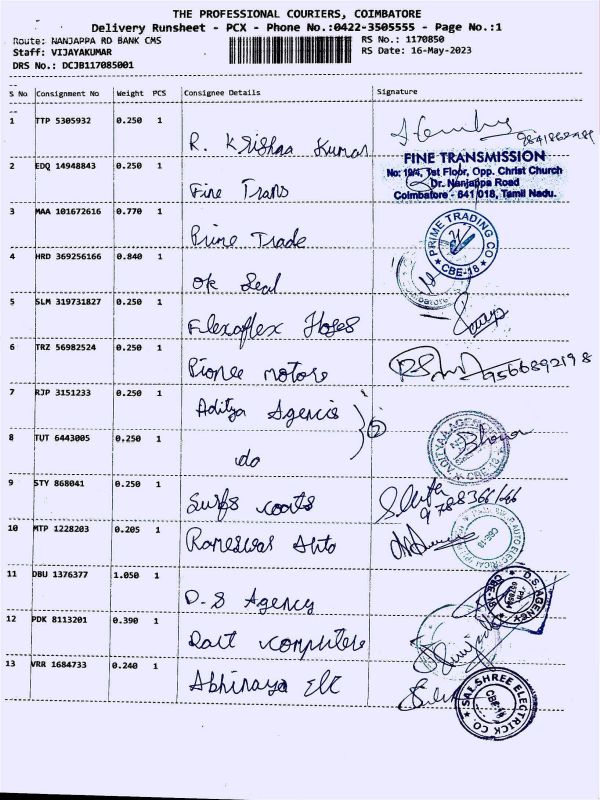 THE PROFESSIONAL COURIERS, COIMBATORE
Delivery Runsheet - PCX - Phone No.:0422-3505555 - Page No.:1
Route: NANJAPPA RD BANK CMS
RS No.: 1170850
Staff: VIJAYAKUMAR
RS Date: 16-May-2023
DRS No.: DCJB117085001
S No Consignment No Weight PCS Consignee Details Signature
1 TTP 5305932 0.250 1 R. Krishna Kumar
2 EDQ 14948843 0.250 1 Fine Trans
FINE TRANSMISSION
No: 19/4, 1st Floor, Opp. Christ Church
Dr. Nanjappa Road
Coimbatore - 641 018, Tamil Nadu.
3 MAA 101672616 0.770 1 Prime Trade
PRIME TRADING CO
CBE-18
4 HRD 369256166 0.840 1 Ok Seal
5 SLM 319731827 0.250 1 Flexoflex Hoses
6 TRZ 56982524 0.250 1 Pionee motors 9566892198
7 RJP 3151233 0.250 1 Aditya Agencis
2
8 TUT 6443005 0.250 1 do
9 STY 868041 0.250 1 Surfs coats
10 MTP 1228203 0.205 1 Rameswar Auto
CBE-18
11 DBU 1376377 1.050 1 D.S Agency
D.S. AGENCY
12 PDK 8113201 0.390 1 Dart computers
13 VRR 1684733 0.240 1 Abhinaya Elc
SAI SHREE ELECTRICK CO
CBE-18